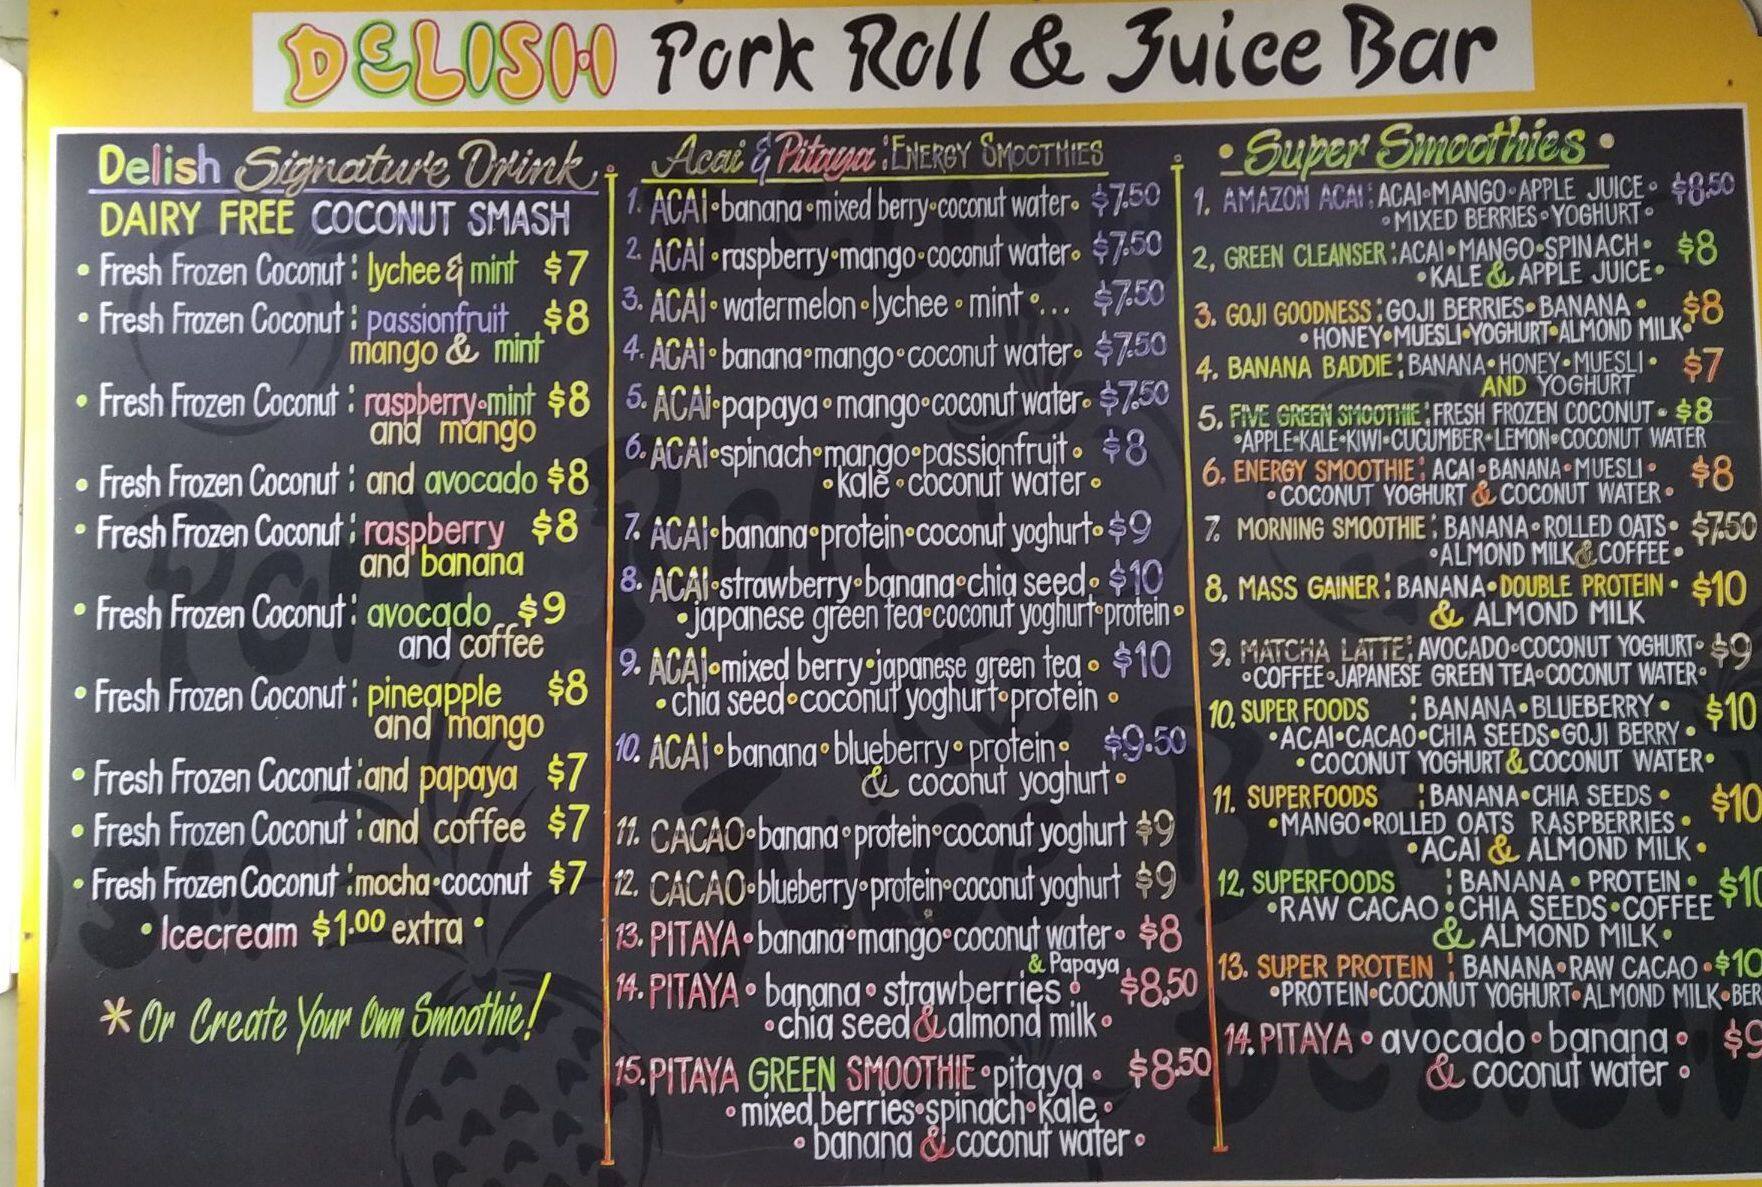 DELISH Pork Roll & Juice Bar
Delish Signature Drink
DAIRY FREE COCONUT SMASH
• Fresh Frozen Coconut : lychee & mint $7
• Fresh Frozen Coconut : passionfruit $8
mango & mint
• Fresh Frozen Coconut : raspberry•mint $8
and mango
• Fresh Frozen Coconut : and avocado $8
• Fresh Frozen Coconut : raspberry $8
and banana
• Fresh Frozen Coconut : avocado $9
and coffee
• Fresh Frozen Coconut : pineapple $8
and mango
• Fresh Frozen Coconut : and papaya $7
• Fresh Frozen Coconut : and coffee $7
• Fresh Frozen Coconut : mocha•coconut $7
• Icecream $1.00 extra •
* Or Create Your Own Smoothie!
Acai & Pitaya : ENERGY SMOOTHIES
1. ACAI•banana•mixed berry•coconut water• $7.50
2. ACAI•raspberry•mango•coconut water• $7.50
3. ACAI•watermelon•lychee•mint•... $7.50
4. ACAI•banana•mango•coconut water• $7.50
5. ACAI•papaya•mango•coconut water• $7.50
6. ACAI•spinach•mango•passionfruit• $8
•kale•coconut water•
7. ACAI•banana•protein•coconut yoghurt• $9
8. ACAI•strawberry•banana•chia seed• $10
•japanese green tea•coconut yoghurt•protein•
9. ACAI•mixed berry•japanese green tea• $10
•chia seed•coconut yoghurt•protein•
10. ACAI•banana•blueberry•protein• $9.50
& coconut yoghurt•
11. CACAO•banana•protein•coconut yoghurt $9
12. CACAO•blueberry•protein•coconut yoghurt $9
13. PITAYA•banana•mango•coconut water• $8
& Papaya
14. PITAYA•banana•strawberries• $8.50
•chia seed & almond milk•
15. PITAYA GREEN SMOOTHIE•pitaya• $8.50
•mixed berries•spinach•kale•
•banana & coconut water•
• Super Smoothies •
1. AMAZON ACAI : ACAI•MANGO•APPLE JUICE• $8.50
•MIXED BERRIES•YOGHURT•
2, GREEN CLEANSER : ACAI•MANGO•SPINACH• $8
•KALE & APPLE JUICE•
3. GOJI GOODNESS : GOJI BERRIES•BANANA• $8
•HONEY•MUESLI•YOGHURT•ALMOND MILK•
4. BANANA BADDIE : BANANA•HONEY•MUESLI• $7
AND YOGHURT
5. FIVE GREEN SMOOTHIE : FRESH FROZEN COCONUT• $8
•APPLE•KALE•KIWI•CUCUMBER•LEMON•COCONUT WATER
6. ENERGY SMOOTHIE : ACAI•BANANA•MUESLI• $8
•COCONUT YOGHURT & COCONUT WATER•
7. MORNING SMOOTHIE : BANANA•ROLLED OATS• $7.50
•ALMOND MILK & COFFEE•
8. MASS GAINER : BANANA•DOUBLE PROTEIN• $10
& ALMOND MILK
9. MATCHA LATTE : AVOCADO•COCONUT YOGHURT• $9
•COFFEE•JAPANESE GREEN TEA•COCONUT WATER•
10. SUPER FOODS : BANANA•BLUEBERRY• $10
•ACAI•CACAO•CHIA SEEDS•GOJI BERRY•
•COCONUT YOGHURT & COCONUT WATER•
11. SUPERFOODS : BANANA•CHIA SEEDS• $10
•MANGO•ROLLED OATS RASPBERRIES•
•ACAI & ALMOND MILK•
12, SUPERFOODS : BANANA•PROTEIN• $10
•RAW CACAO•CHIA SEEDS•COFFEE
& ALMOND MILK•
13. SUPER PROTEIN : BANANA•RAW CACAO• $10
•PROTEIN•COCONUT YOGHURT•ALMOND MILK•BER
14. PITAYA•avocado•banana• $9
& coconut water•